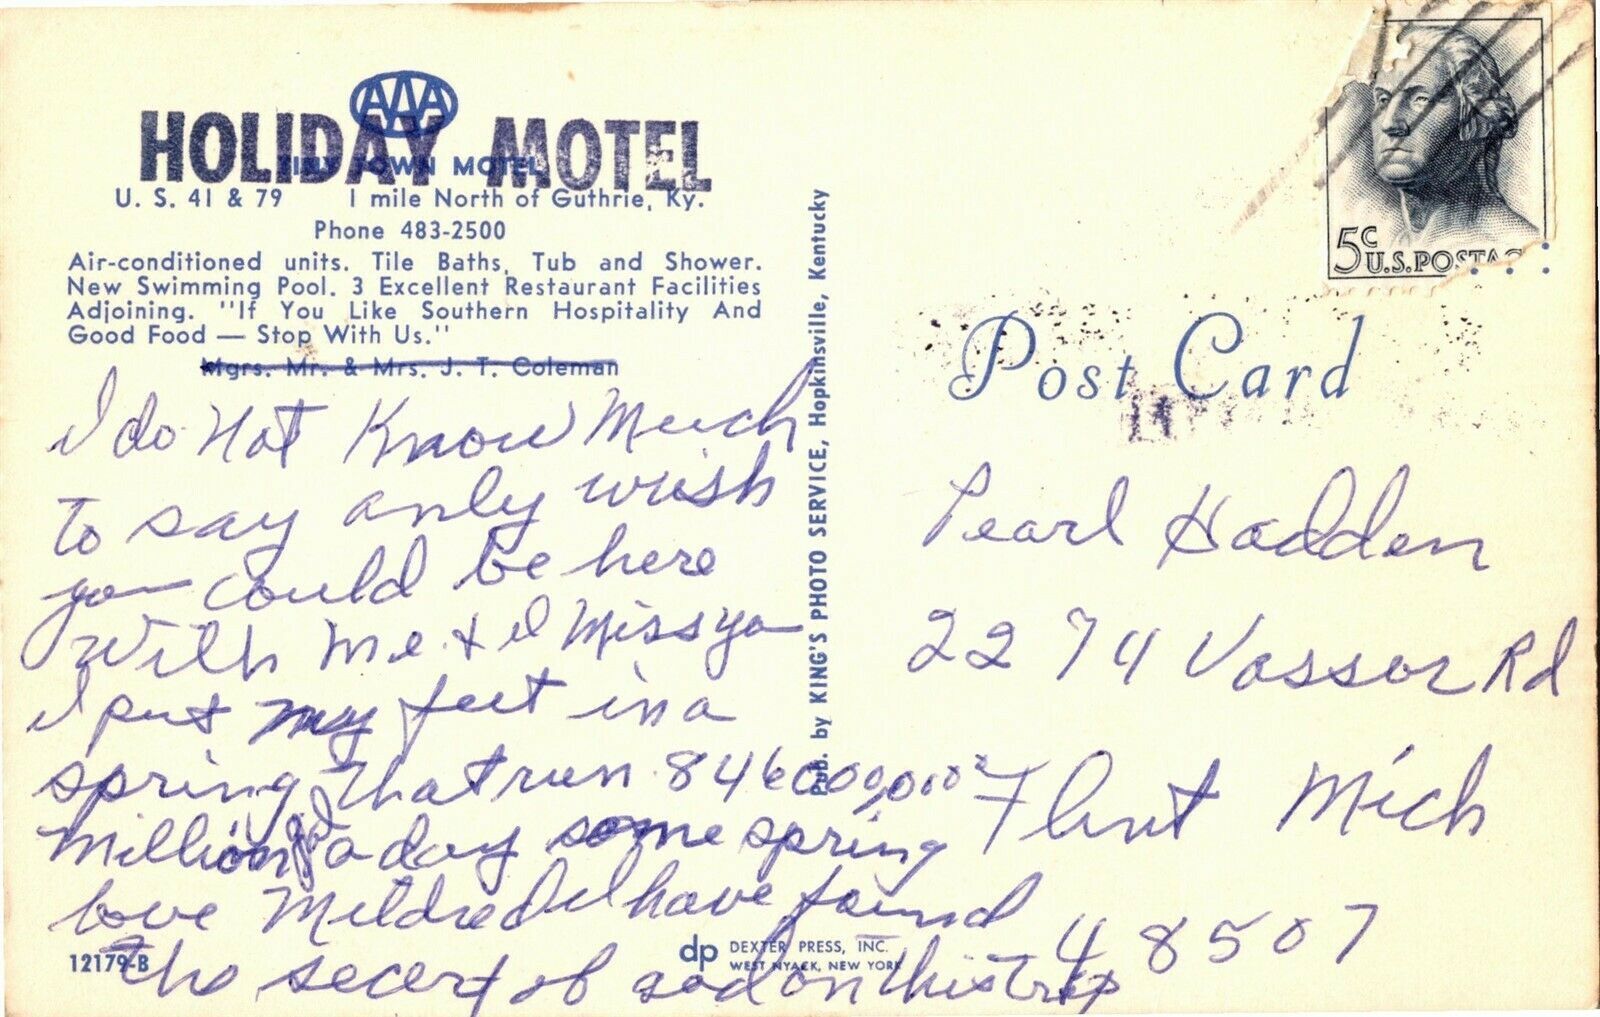 AAA
HOLIDAY MOTEL
TINY TOWN MOTEL
U. S. 41 & 79 1 mile North of Guthrie, Ky.
Phone 483-2500
Air-conditioned units. Tile Baths, Tub and Shower.
New Swimming Pool. 3 Excellent Restaurant Facilities
Adjoining. "If You Like Southern Hospitality And
Good Food — Stop With Us."
Mgrs. Mr. & Mrs. J. T. Coleman
I do Not Know Much
to say only wish
you could be here
with me & I Miss you
I put my feet in a
spring that run 846000,000
million a day some spring
love Mildred I have found
the secert of god on this trip
12179-B
Pub. by KING'S PHOTO SERVICE, Hopkinsville, Kentucky
dp DEXTER PRESS, INC.
WEST NYACK, NEW YORK
5c
U.S. POSTAG
Post Card
Pearl Hadden
2274 Vassor Rd
Flint Mich
48507